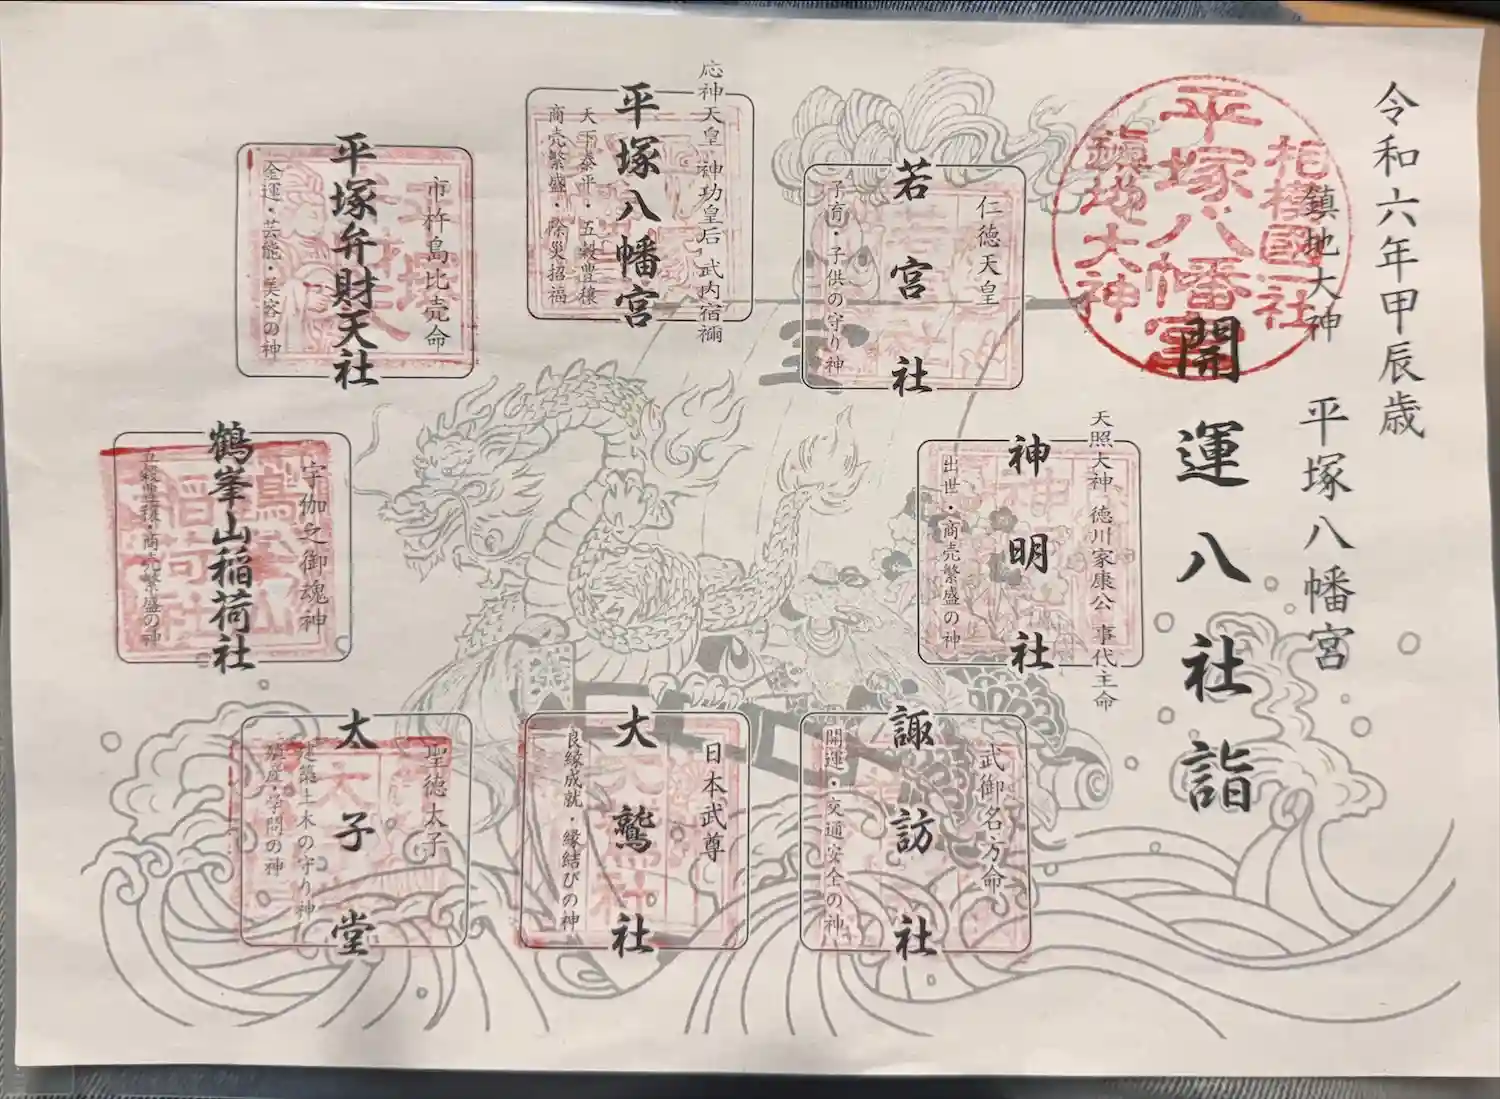 令和六年甲辰歳
鎮地大神
平塚八幡宮
開運八社詣
相模國一社
平塚八幡宮
鎮地大神
仁徳天皇
若宮社
子育・子供の守り神
応神天皇 神功皇后 武内宿禰
平塚八幡宮
天下泰平・五穀豊穣
商売繁盛・除災招福
市杵島比売命
平塚弁財天社
金運・芸能・美容の神
天照大神 徳川家康公 事代主命
神明社
出世・商売繁盛の神
宇伽之御魂神
鶴峯山稲荷社
五穀豊穣・商売繁盛の神
武御名方命
諏訪社
開運・交通安全の神
日本武尊
大鷲社
良縁成就・縁結びの神
聖徳太子
太子堂
建築土木の守り神
殖産・学問の神